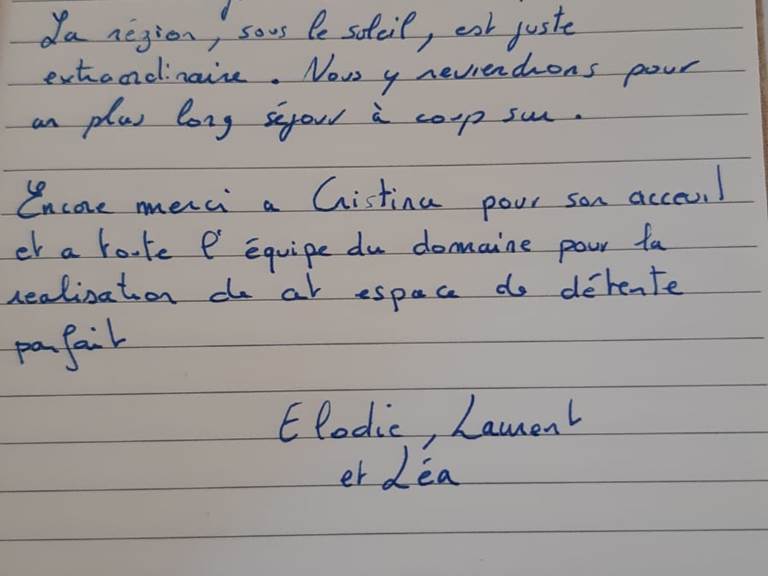 La région, sous le soleil, est juste
extraordinaire. Nous y reviendrons pour
un plus long séjour à coup sur.
Encore merci a Cristina pour son acceuil
et a toute l'équipe du domaine pour la
realisation de cet espace de détente
parfait
Elodie, Laurent
et Léa